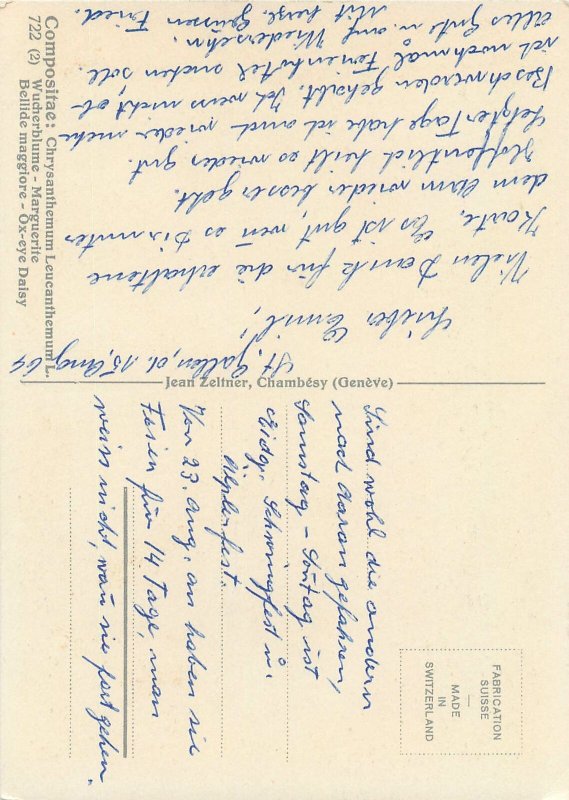 Compositae: Chrysanthemum Leucanthemum L.
722 (2) Wucherblume - Marguerite
Bellide maggiore - Ox-eye Daisy
St. Gallen, d. 15. Aug 64
Lieber Emil!
Vielen Dank für die erhaltene
Karte. Es ist gut, wen̄ es Dir unter
dem Arm wieder besser geht.
Hoffentlich heilt es wieder gut.
Letzter Tage habe ich auch wieder mehr
Beschwerden gehabt. Ich weiss nicht, ob
ich nochmal Ferienhotel suchen soll.
Alles Gute u. auf Wiedersehn.
Mit herzl. Grüssen Fried.
Jean Zeltner, Chambésy (Genève)
Sind wohl die andern
nach Aarau gefahren,
Samstag – Son̄tag ist
Eidg. Schwingfest u.
Älplerfest.
Von 23. Aug. an haben sie
Ferien für 14 Tage, man
weiss nicht, wan̄ sie fortgehen.
FABRICATION
SUISSE
—
MADE
IN
SWITZERLAND